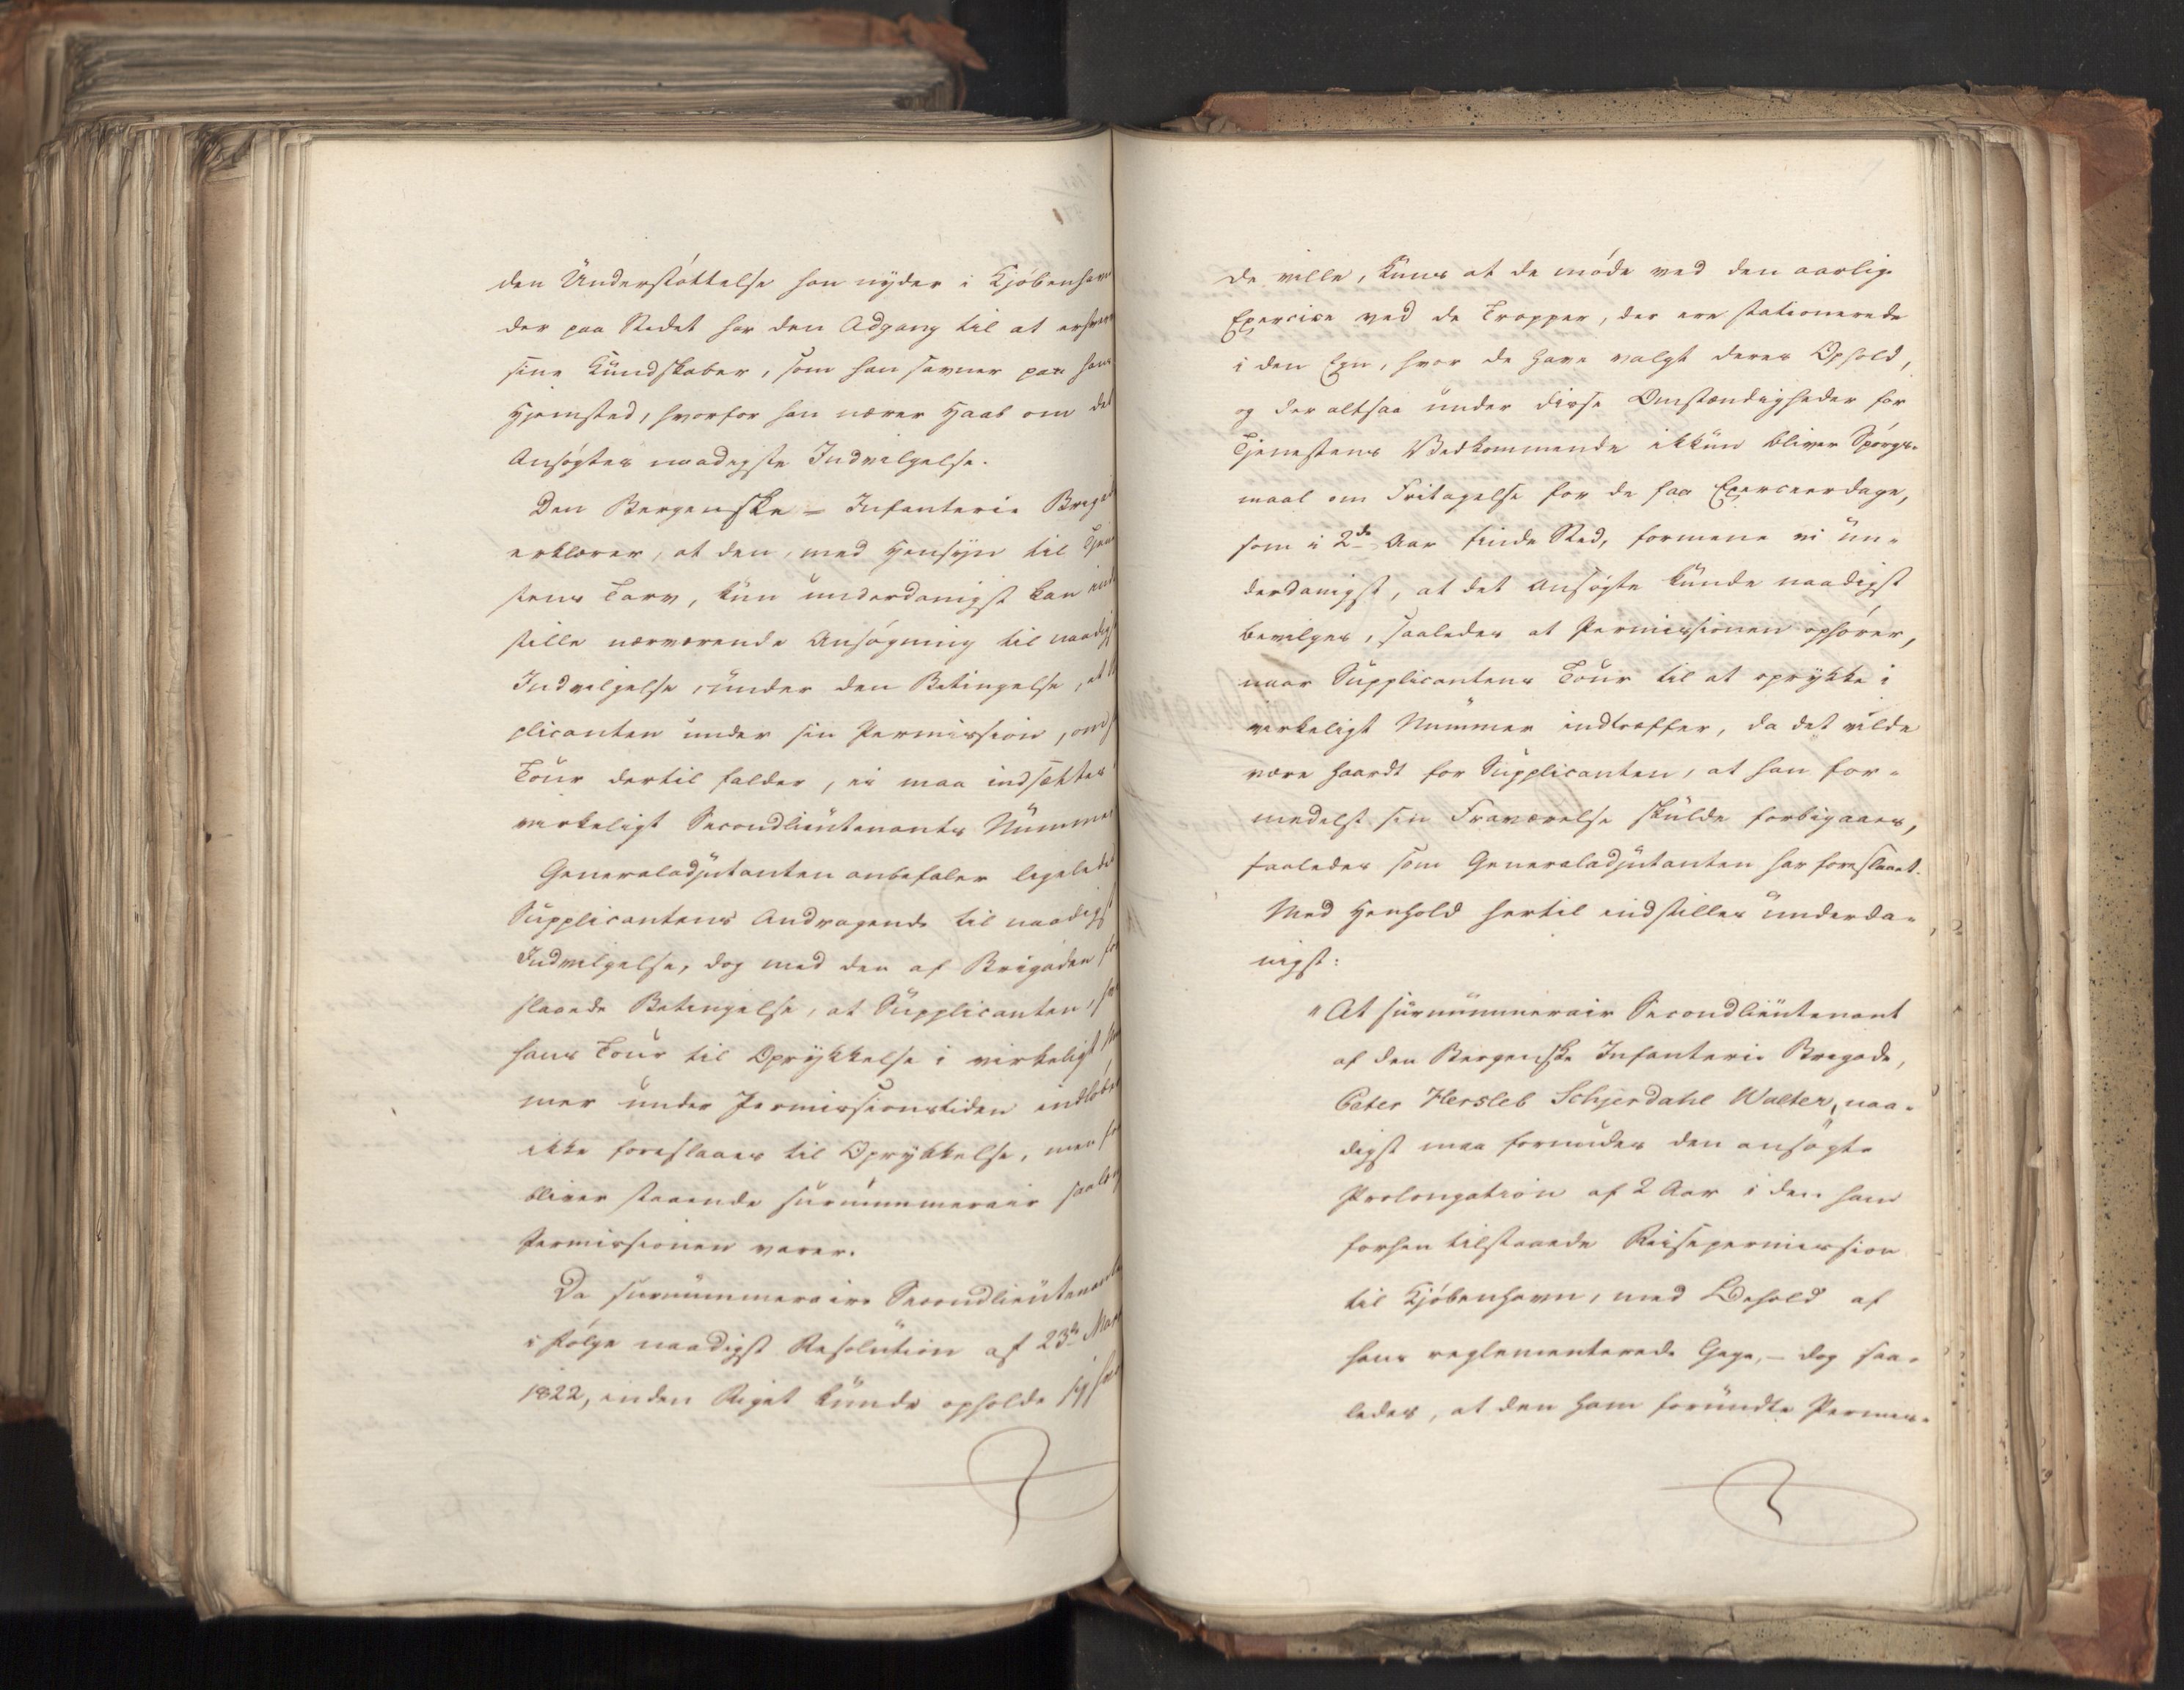 den Understøttelse han nyder i Kjøbenhavn
der paa Stedet har den Adgang til at erhverve
sine Kundskaber, som han savner paa hans
Hjemsted, hvorfor han nærer Haab om det
Ansøgtes naadigste Indvilgelse.
Den Bergenske Infanterie Brigade
erklærer, at den, med Hensyn til Tjene
stens Tarv, kun underdanigst kan ind
stille nærværende Ansøgning til naadigst
Indvilgelse, under den Betingelse, at
plicanten under sin Permission, om
Tour dertil falder, ei maa indsættes
virkeligt Secondlieutenants Nummer
Generaladjutanten anbefaler ligeledes
Supplicantens Andragende til naadigst
Indvilgelse, dog med den af Brigaden fo
slaaede Betingelse, at Supplicanten,
hans Tour til Oprykkelse i virkeligt Nu
mer under Permissionstiden indløber
ikke foreslaaes til Oprykkelse, men
bliver staaende surnummerair saalæng
Permissionen varer.
Da surnummeraire Secondlieutenanter
i Følge naadigst Resolution af 23de Marts
1822, inden Riget kunde opholde sig
de ville, kuns at de møde ved den aarlige
Exercice ved de Tropper, der ere stationerede
i den Egn, hvor de have valgt deres Ophold,
og der altsaa under disse Omstændigheder for
Tjenestens Vedkommende ikkun bliver Spørgs-
maal om Fritagelse for de faa Exerceerdage,
som i 2de Aar finde Sted, formene vi un-
derdanigst, at det Ansøgte kunde naadigst
bevilges, saaledes at Permissionen ophører,
naar Supplicantens Tour til at oprykke i
virkeligt Nummer indtræffer, da det vilde
være haardt for Supplicanten, at han for-
medelst sin Fraværelse skulde forbigaaes,
saaledes som Generaladjutanten har foreslaaet.
Med Henhold hertil indstilles underda-
nigst:
"At surnummerair Secondlieutenant
af den Bergenske Infanterie Brigade,
Peter Hersleb Schjerdahl Walter, naa-
digst maa forundes den ansøgte
Prolongation af 2 Aar i den ham
forhen tilstaaede Reisepermission
til Kjøbenhavn, med Behold af
hans reglementerede Gage,- dog saa-
ledes, at den ham forundte Permis-